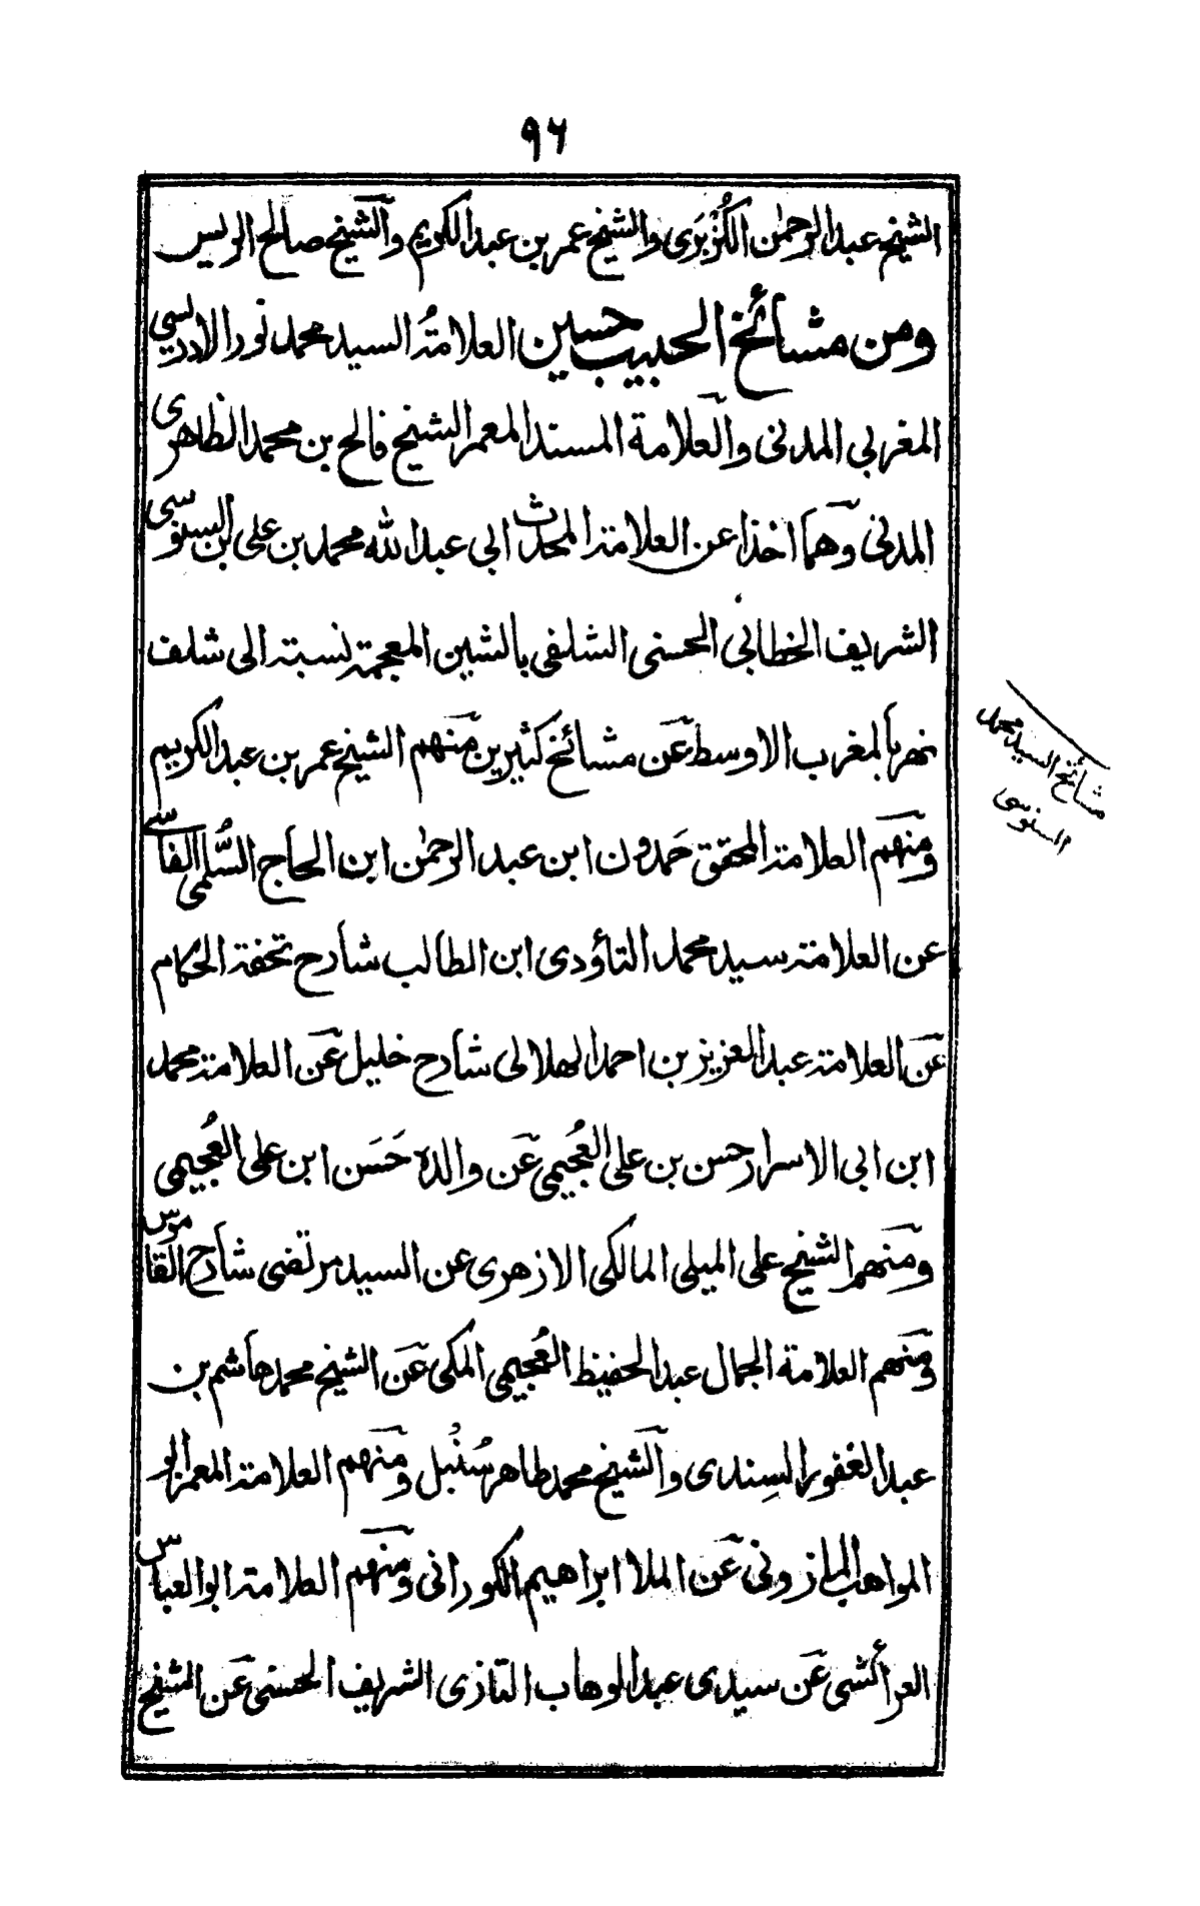 ٩٦
الشيخ عبد الرحمٰن الكُزْبَرَى والشيخ عمر بن عبد الكريم والشيخ صالح الريس
ومن مشائخ الحبيب حسين العلامةُ السيد محمد نور الادريسي
المغربي المدنى والعلامة المسند المعمر الشيخ فالح بن محمد الظاهرى
المدنى وهما اخذا عن العلامة المحدث ابى عبد الله محمد بن على بن السنوسى
الشريف الخطابى الحسنى الشلفى بالشين المعجمة نسبة الى شلف
نهر بالمغرب الاوسط عن مشائخ كثيرين منهم الشيخ عمر بن عبد الكريم
ومنهم العلامة المحقق حَمدون ابن عبد الرحمٰن ابن الحاج السُّلمى الفاسي
عن العلامة سيد محمد التاؤدى ابن الطالب شارح تحفة الحكام
عن العلامة عبد العزيز بن احمد الهلالى شارح خليل عن العلامة محمد
ابن ابى الاسرار حسن بن على العُجيمى عن والده حَسَن ابن على العُجيمى
ومنهم الشيخ على الميلى المالكى الازهرى عن السيد مرتضى شارح القاموس
ومنهم العلامة الجمال عبد الحفيظ العُجيمى المكى عن الشيخ محمد هاشم بن
عبد الغفور السِندى والشيخ محمد طاهر سُنْبل ومنهم العلامة المعمر ابو
المواهب المازونى عن الملا ابراهيم الكورانى ومنهم العلامة ابو العباس
العرائشى عن سيدى عبد الوهاب التازى الشريف الحسنى عن الشيخ
مشائخ السيد محمد
السنوسى